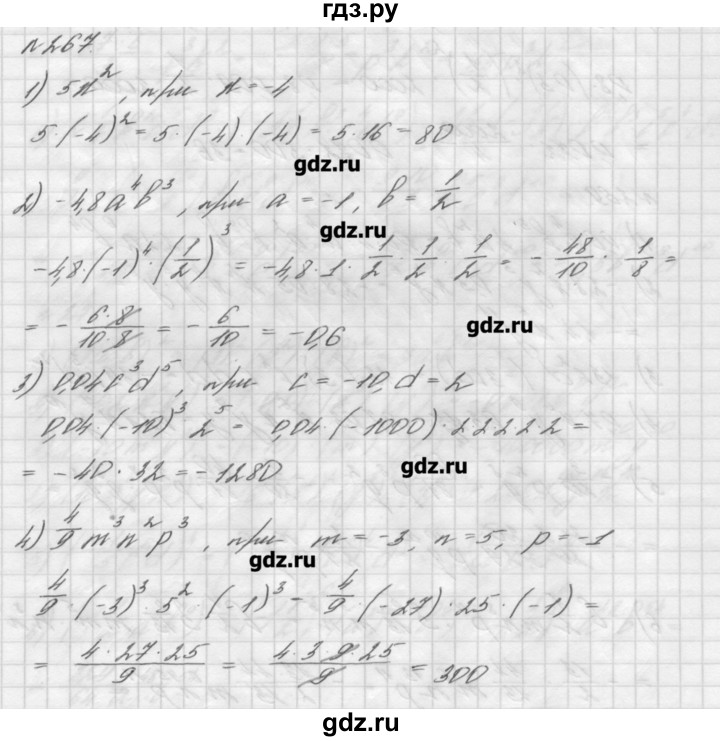 гдз.ру
№267.
1) 5x², при x = -4
5·(-4)² = 5·(-4)·(-4) = 5·16 = 80
gdz.ru
2) -4,8a⁴b³, при a = -1, b = 1/2
gdz.ru
-4,8·(-1)⁴·(1/2)³ = -4,8·1·1/2·1/2·1/2 = -48/10·1/8 =
= -6·8/10·8 = -6/10 = -0,6
gdz.ru
3) 0,04c³d⁵, при c = -10, d = 2
0,04·(-10)³·2⁵ = 0,04·(-1000)·2·2·2·2·2 =
= -40·32 = -1280
gdz.ru
4) 4/9m³n²p³, при m = -3, n = 5, p = -1
gdz.ru
4/9·(-3)³·5²·(-1)³ = 4/9·(-27)·25·(-1) =
= 4·27·25/9 = 4·3·9·25/9 = 300
gdz.ru